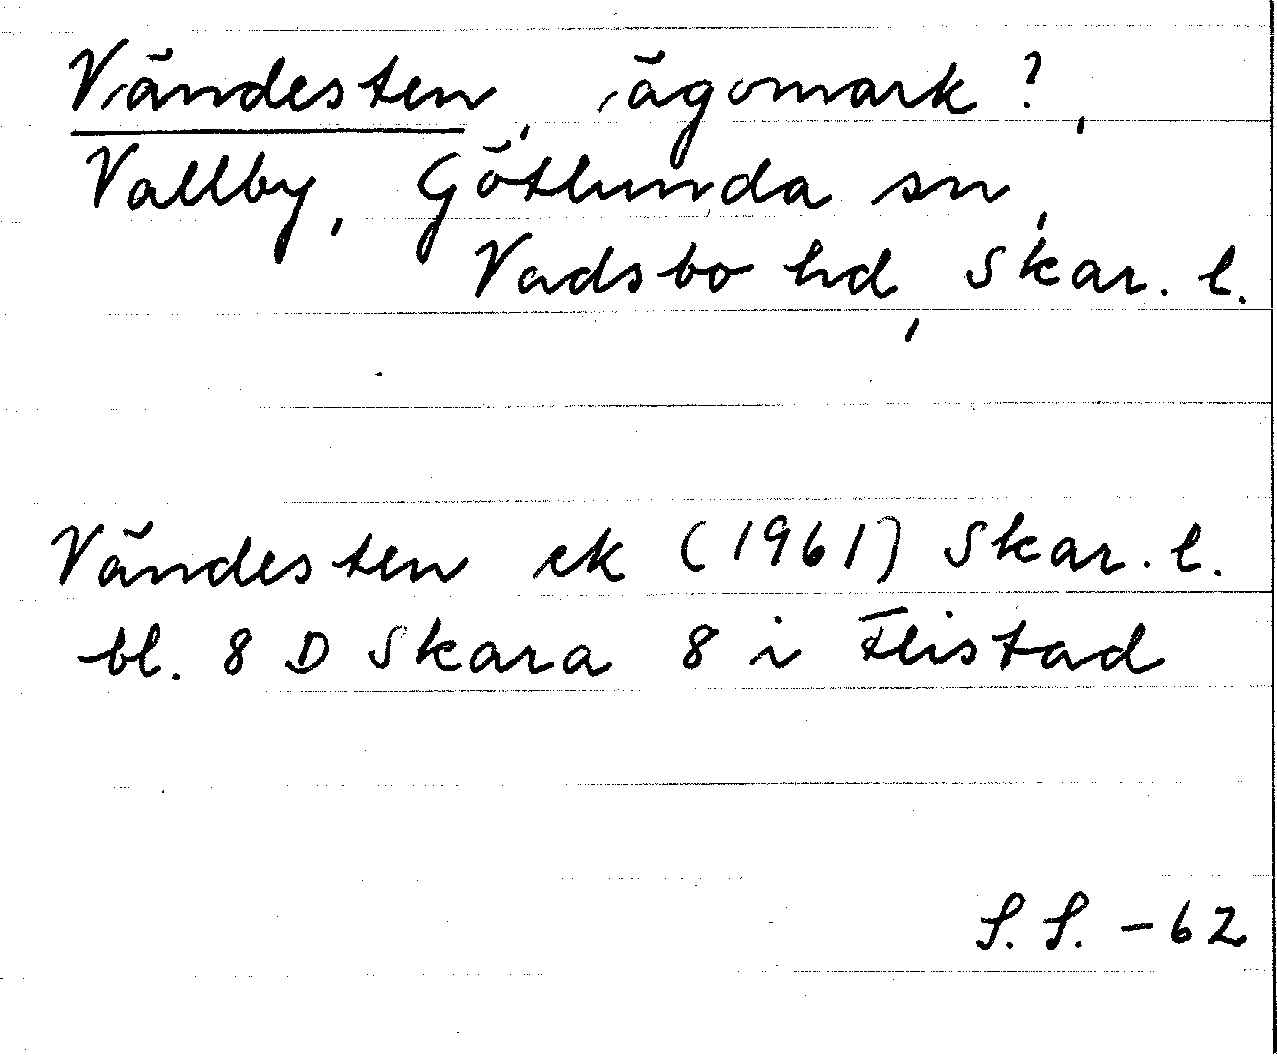 Vändesten, ägomark?,
Vallby, Götlunda sn,
Vadsbo hd, Skar. l.
Vändesten ek (1961) Skar. l.
bl. 8 D Skara 8 i Flistad
S. S. -62